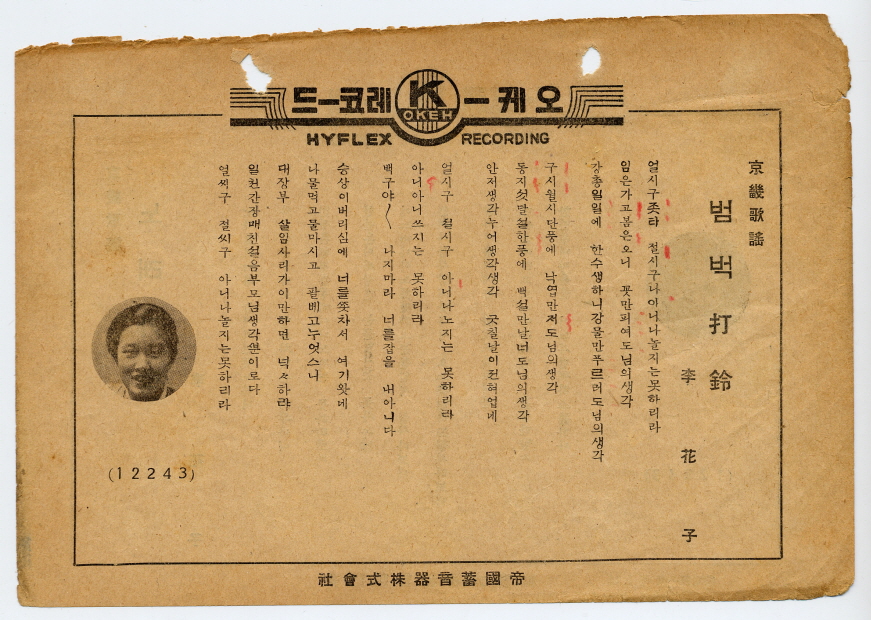 오케-레코-드
K
OKEH
HYFLEX RECORDING
京畿歌謠
범벅打鈴
李花子
얼시구좃타 절시구나아니나놀지는못하리라
임은가고봄은오니 꼿만피여도님의생각
강충일일에 한수생하니강물만푸르러도님의생각
구시월시단풍에 낙엽만저도님의생각
동지섯달설한풍에 백설만날녀도님의생각
안저생각누어생각생각 긋칠날이전혀업네
얼시구 절시구 아니나노지는 못하리라
아니아니쓰지는 못하리라
백구야〱 나지마라 너를잡을 내아니다
승상이버리심에 너를쫏차서 여기왓네
나물먹고물마시고 팔베고누엇스니
대장부 살임사리가이만하면 넉々하랴
일천간장매친설음부모님생각뿐이로다
얼씨구 절씨구 아니나놀지는못하리라
(12243)
帝國蓄音器株式會社